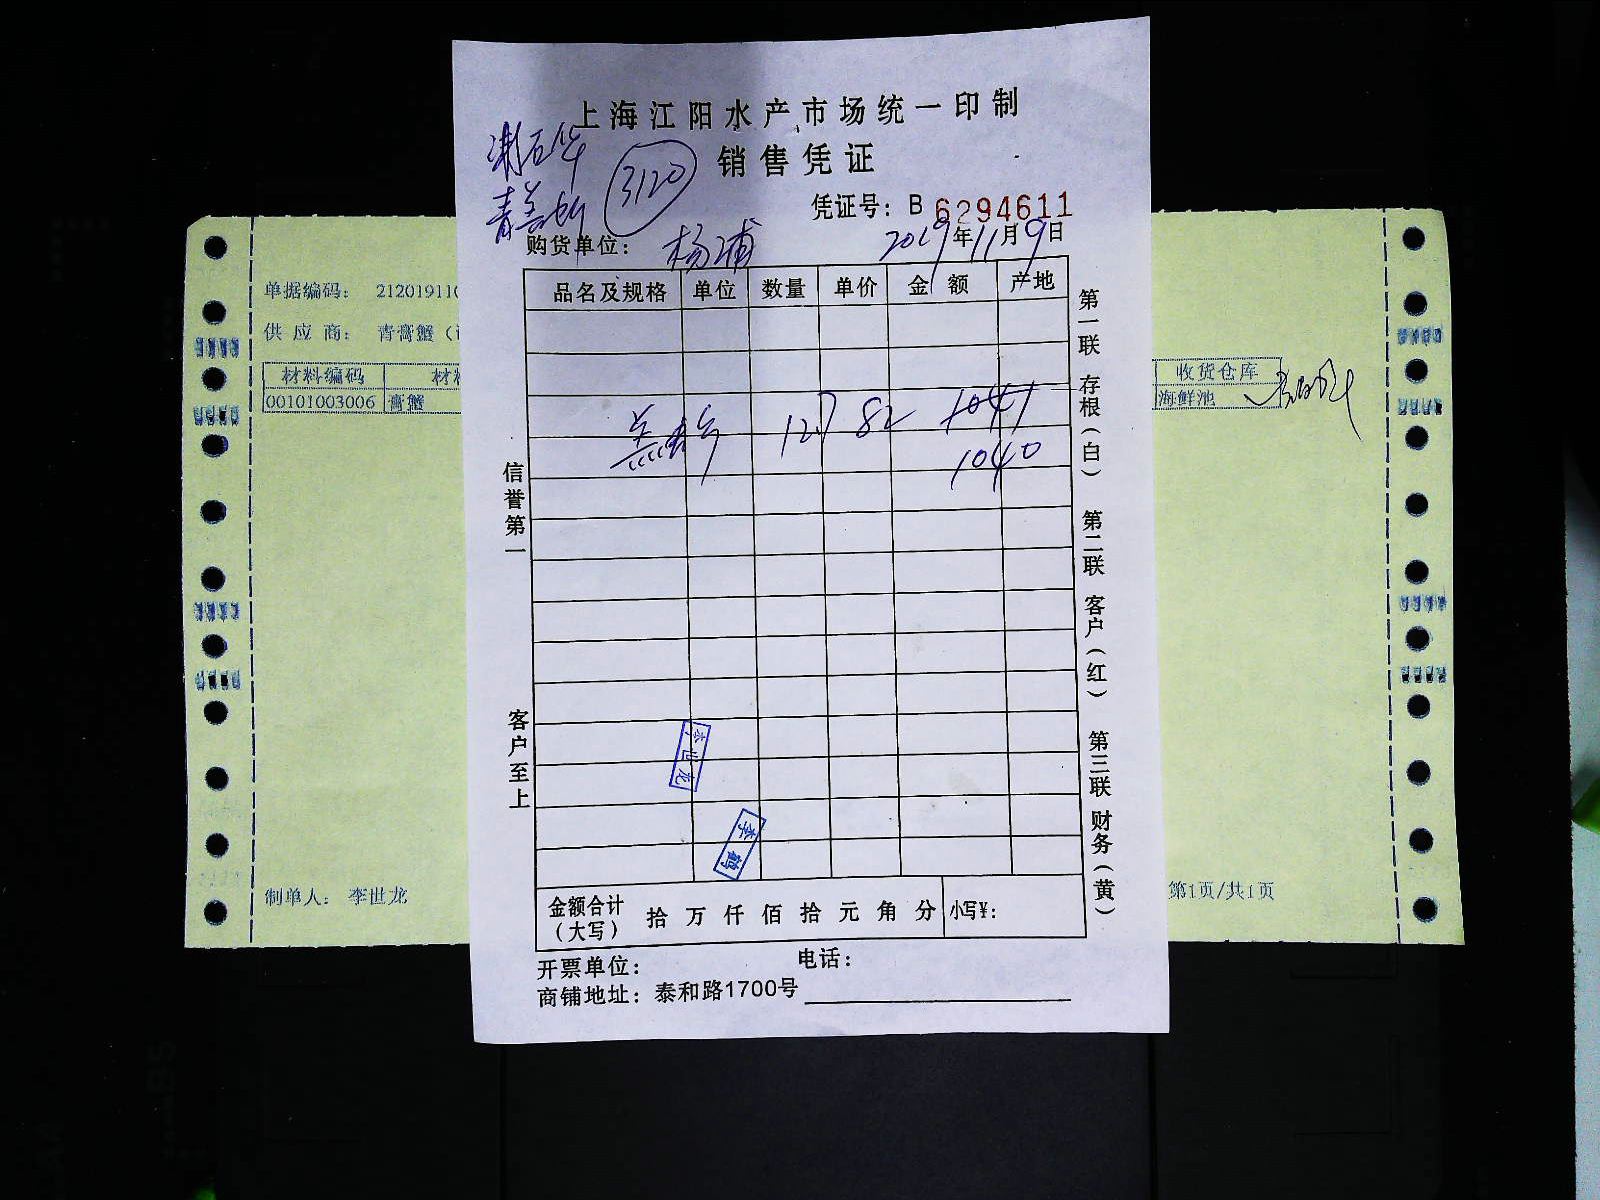 上海江阳水产市场统一印制
销售凭证
3120
凭证号: B 6294611
购货单位: 杨浦 2019年11月9日
品名及规格 单位 数量 单价 金额 产地
127 82 1041
1040
信誉第一
客户至上
第一联 存根(白) 第二联 客户(红) 第三联 财务(黄)
李世龙
李鹤
金额合计(大写) 拾 万 仟 佰 拾 元 角 分 小写¥:
开票单位: 电话:
商铺地址: 泰和路1700号
单据编码: 212019110
供应商: 青膏蟹(
材料编码 材料 收货仓库
00101003006 膏蟹 海鲜池
制单人: 李世龙 第1页/共1页